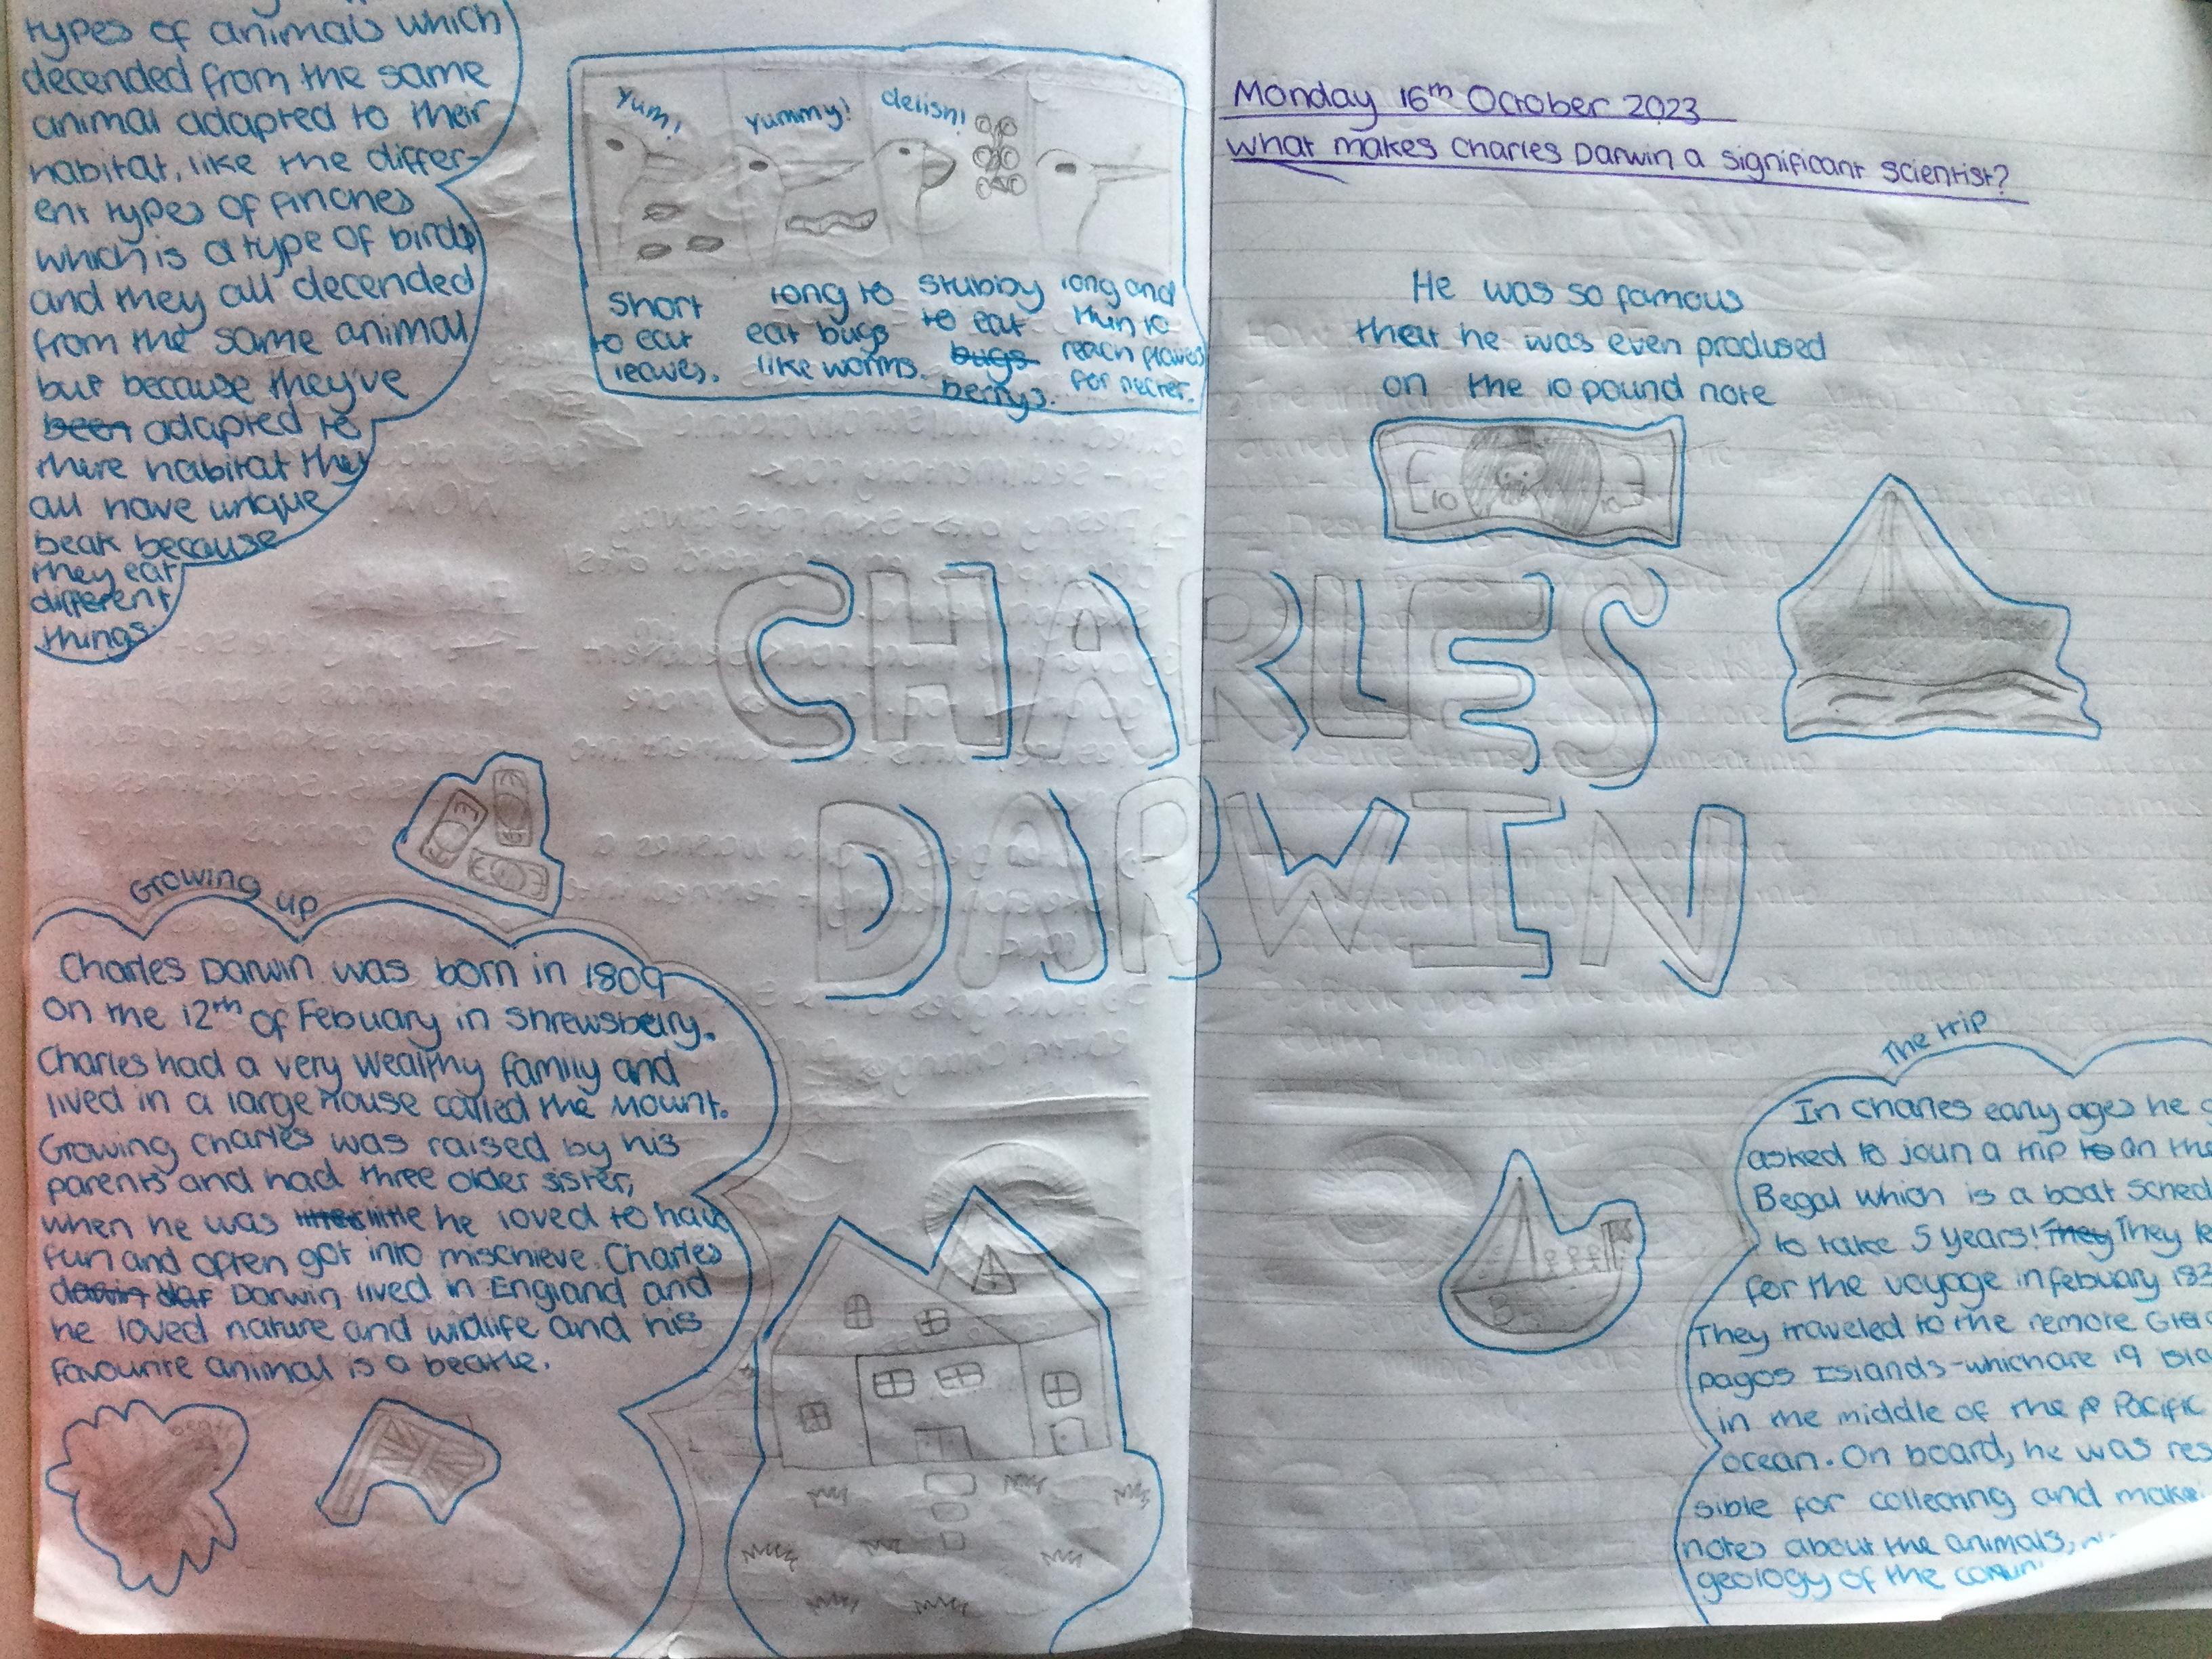 types of animals which
decended from the same
animal adapted to their
habitat, like the differ-
ent types of finches
which is a type of birds
and they all decended
from the same animal
but because they've
been adapted to
there habitat they
all have unique
beak because
they eat
different
things.
Yum!
yummy!
delish!
short
to eat
leaves.
long to
eat bugs
like worms.
stubby
to eat
bugs
berrys.
long and
thin to
reach
for necter.
Monday 16th October 2023
What makes Charles Darwin a significant scientist?
He was so famous
that he was even prodused
on the 10 pound note
£10
10£
CHARLES
DARWIN
Growing up
Charles Darwin was born in 1809
on the 12th of Febuary in Shrewsbury.
Charles had a very wealthy family and
lived in a large house called the Mount.
Growing Charles was raised by his
parents and had three older sister,
when he was little he loved to have
fun and often got into mischieve. Charles
Darwin lived in England and
he loved nature and wildlife and his
favourite animal is a beatle.
The trip
In Charles early ages he
asked to joun a trip to on the
Begal which is a boat sched
to take 5 years! They They le
for the voyage in febuary 183
They traveled to the remote
pagos Islands-which are 19 isla
in the middle of the Pacific
ocean. On board, he was res
sible for collecting and maki
notes about the animals,
geology of the